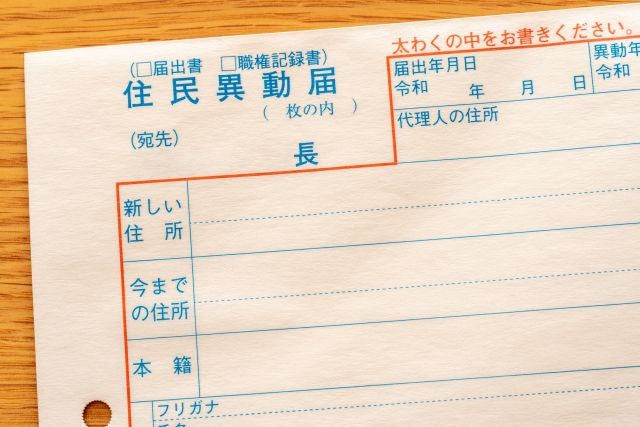 (□届出書 □職権記録書)
住民異動届
( 枚の内 )
(宛先)
長
太わくの中をお書きください。
届出年月日
令和 年 月 日
異動年
令和
代理人の住所
新しい
住 所
今まで
の住所
本 籍
フリガナ
氏名